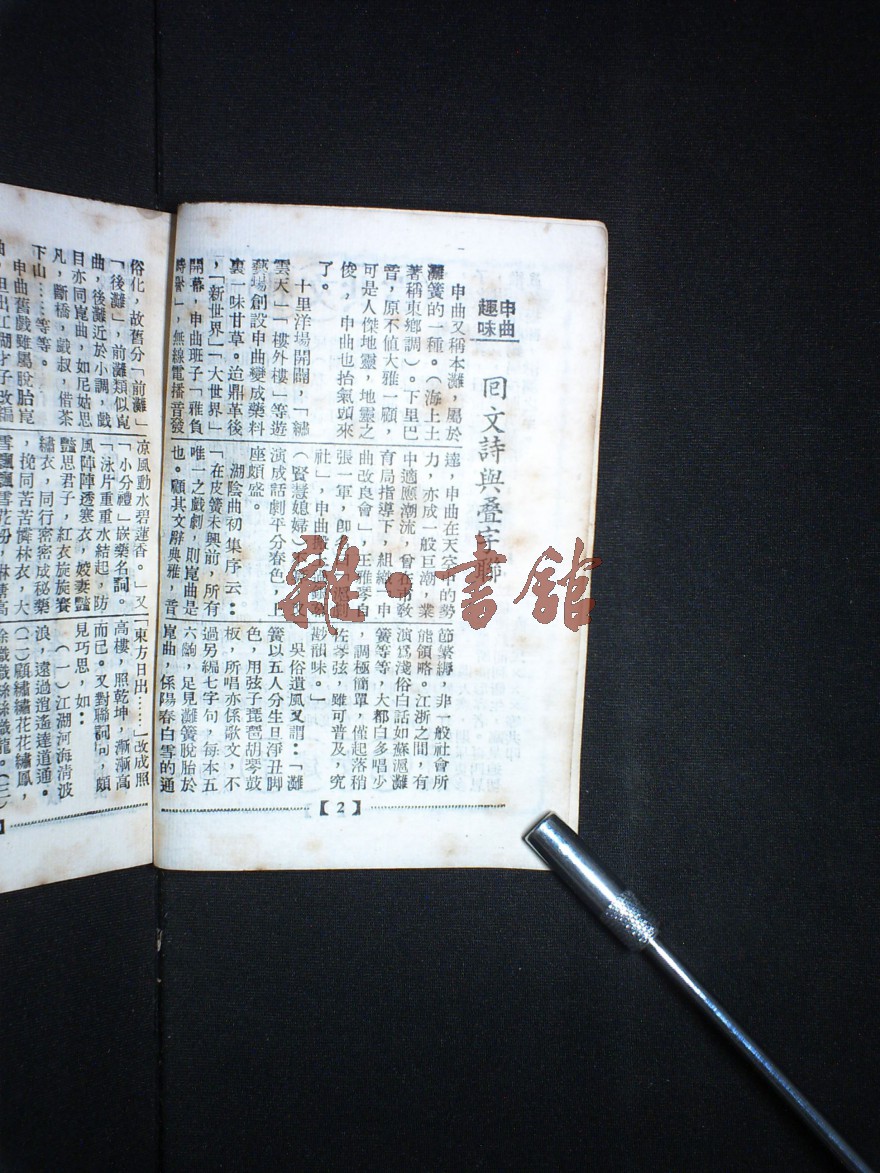 申曲
趣味
回文詩與疊字聯
申曲又稱本灘，屬於
灘簧的一種。（海上土
著稱東鄉調）。下里巴
音，原不値大雅一顧，
可是人傑地靈，地靈之
俊，申曲也抬氣頭來
了。
十里洋塲開闢，「繡
雲天」「樓外樓」等遊
藝塲創設申曲變成藥料
裏一味甘草。迨鼎革後
，「新世界」「大世界」
開幕，申曲班子「雅負
時譽」，無線電播音發
達，申曲在天空中的勞
力，亦成一般巨潮，業
中適應潮流，曾在
育局指導下，組織
曲改良會」，王雅琴
張一軍，
社」，申曲
（賢慧媳婦）
演成話劇平分春色，上
座頗盛。
湖陰曲初集序云：
「在皮簧未興前，所有
唯一之戲劇，則崑曲是
也。顧其文辭典雅，音
節繁縟，非一般社會所
能領略。江浙之間，有
演爲淺俗白話如蘇灘
簧等等，大都白多唱少
，調極簡單，僅起落稍
佐琴弦，雖可普及，究
尠韻味。」
吳俗遺風又謂：「灘
簧以五人分生旦淨丑脚
色，用弦子琵琶胡琴鼓
板，所唱亦係歌文，不
過另編七字句，每本五
六齣，足見灘簧脫胎於
崑曲，係陽春白雪的通
【2】
俗化，故舊分「前灘」
「後灘」，前灘類似崑
曲，後灘近於小調，戲
目亦同崑曲，如尼姑思
凡，斷橋，戲叔，借茶
下山……等等。
申曲舊戲雖屬脫胎崑
曲，但出江湖才子改編
凉風動水碧蓮香。」又
「小分禮」嵌藥名詞。
「泳片重重水結起，防
風陣陣透寒衣，姣妻豔
豔思君子，紅衣旋旋賽
繡衣，同行密密成秘藥
，挽同苦苦儕林衣，大
雪飄飄雪花粉，
「東方日出……」改成照
高樓，照乾坤，漸漸高
而已。又對聯詞句，頗
見巧思，如：
（一）江湖河海清波
浪，遠過逍遙達道通。
（二）顧繡繡花花繡鳳，
絲織龍。（三）
雜·書館